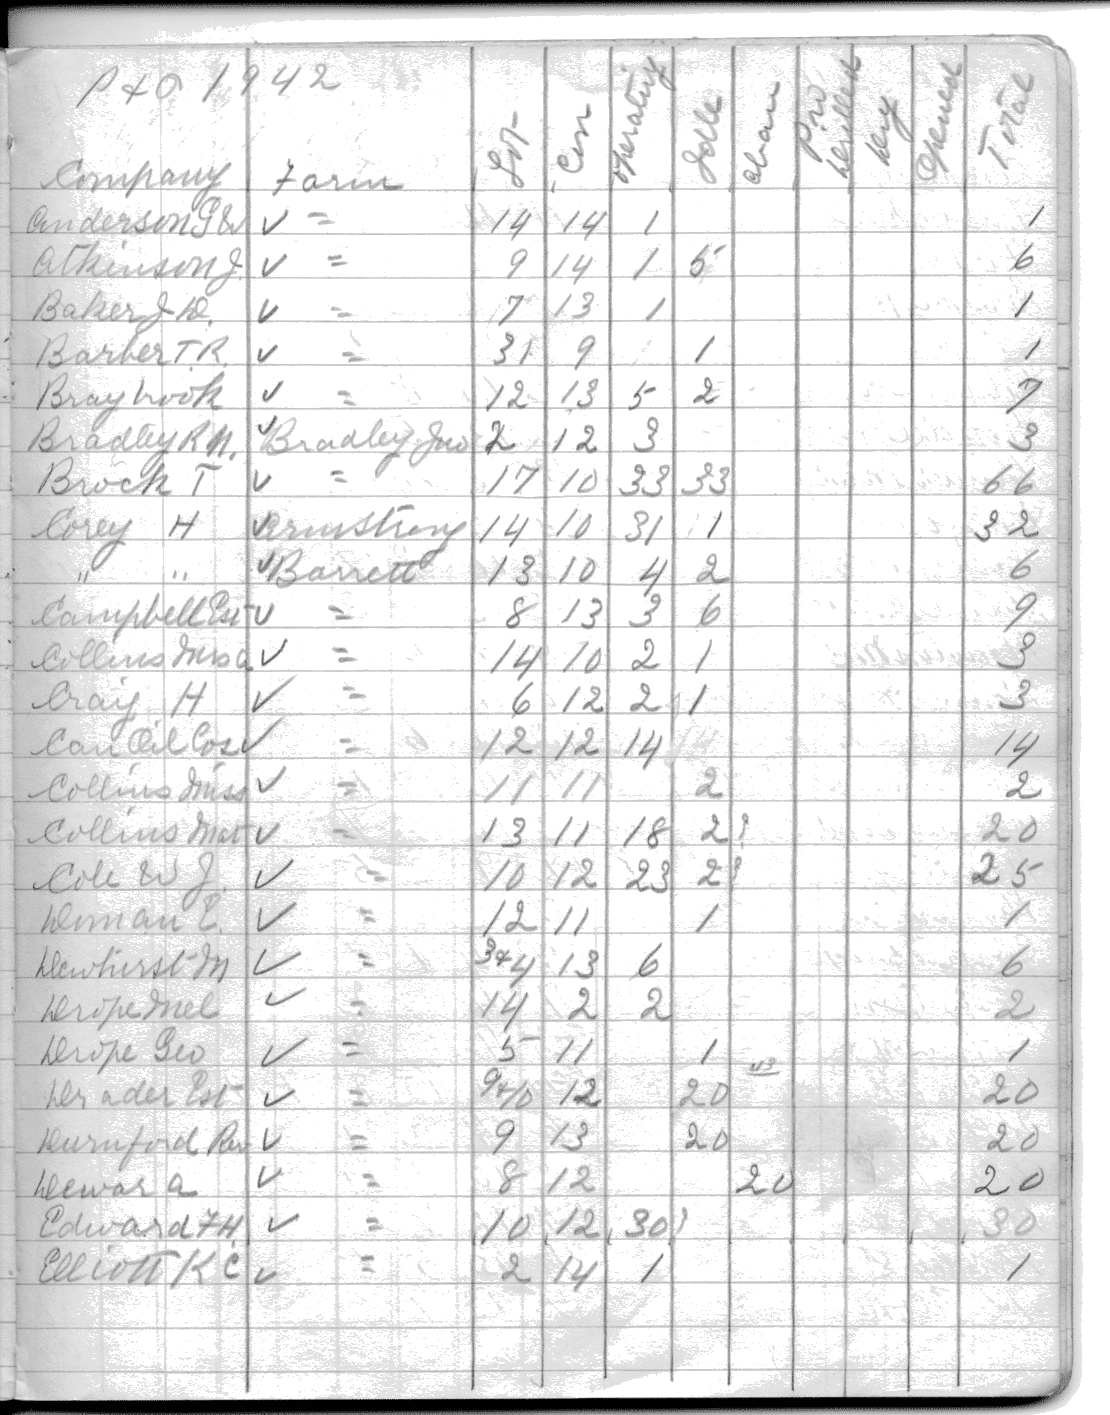 P & O 1942
Company Farm Lot Con Operating Idle Aban Pro Drilled Dry Opened Total
Anderson G W ✓ = 14 14 1 1
Atkinson J. ✓ = 9 14 1 5 6
Baker J D. ✓ = 7 13 1 1
Barber T. R. ✓ = 31 9 1 1
Braybrook ✓ = 12 13 5 2 7
Bradley R M. ✓ Bradley Jno 2 12 3 3
Brock T ✓ = 17 10 33 33 66
Corey H ✓ Armstrong 14 10 31 1 32
" " ✓ Barrett 13 10 4 2 6
Campbell Est ✓ = 8 13 3 6 9
Collins Miss a ✓ = 14 10 2 1 3
Craig H ✓ = 6 12 2 1 3
Can Oil Cos ✓ = 12 12 14 14
Collins Miss ✓ = 11 11 2 2
Collins Mat ✓ = 13 11 18 2? 20
Cole W J. ✓ = 10 12 23 2? 25
Doman E. ✓ = 12 11 1 1
Dewhirst M ✓ = 3+4 13 6 6
Drope Mel ✓ = 14 2 2 2
Drope Geo ✓ = 5 11 1 1
Drader Est ✓ = 9+10 12 20 20
Durnford Rev ✓ = 9 13 20 20
Dewar A ✓ = 8 12 20 20
Edward F H ✓ = 10 12 30? 30
Elliott K C ✓ = 2 14 1 1